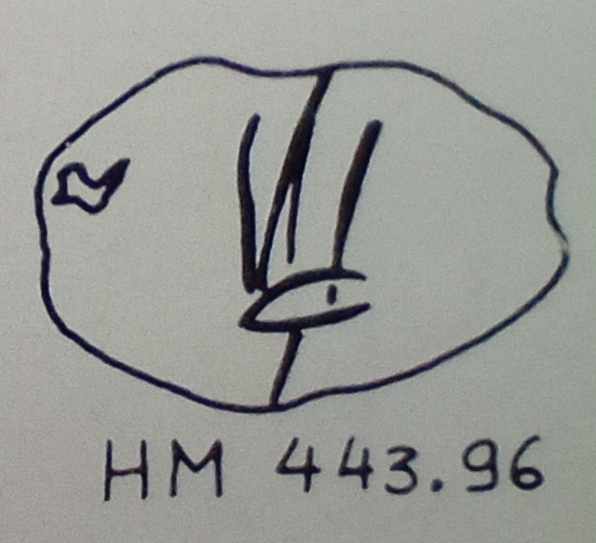 HM 443.96